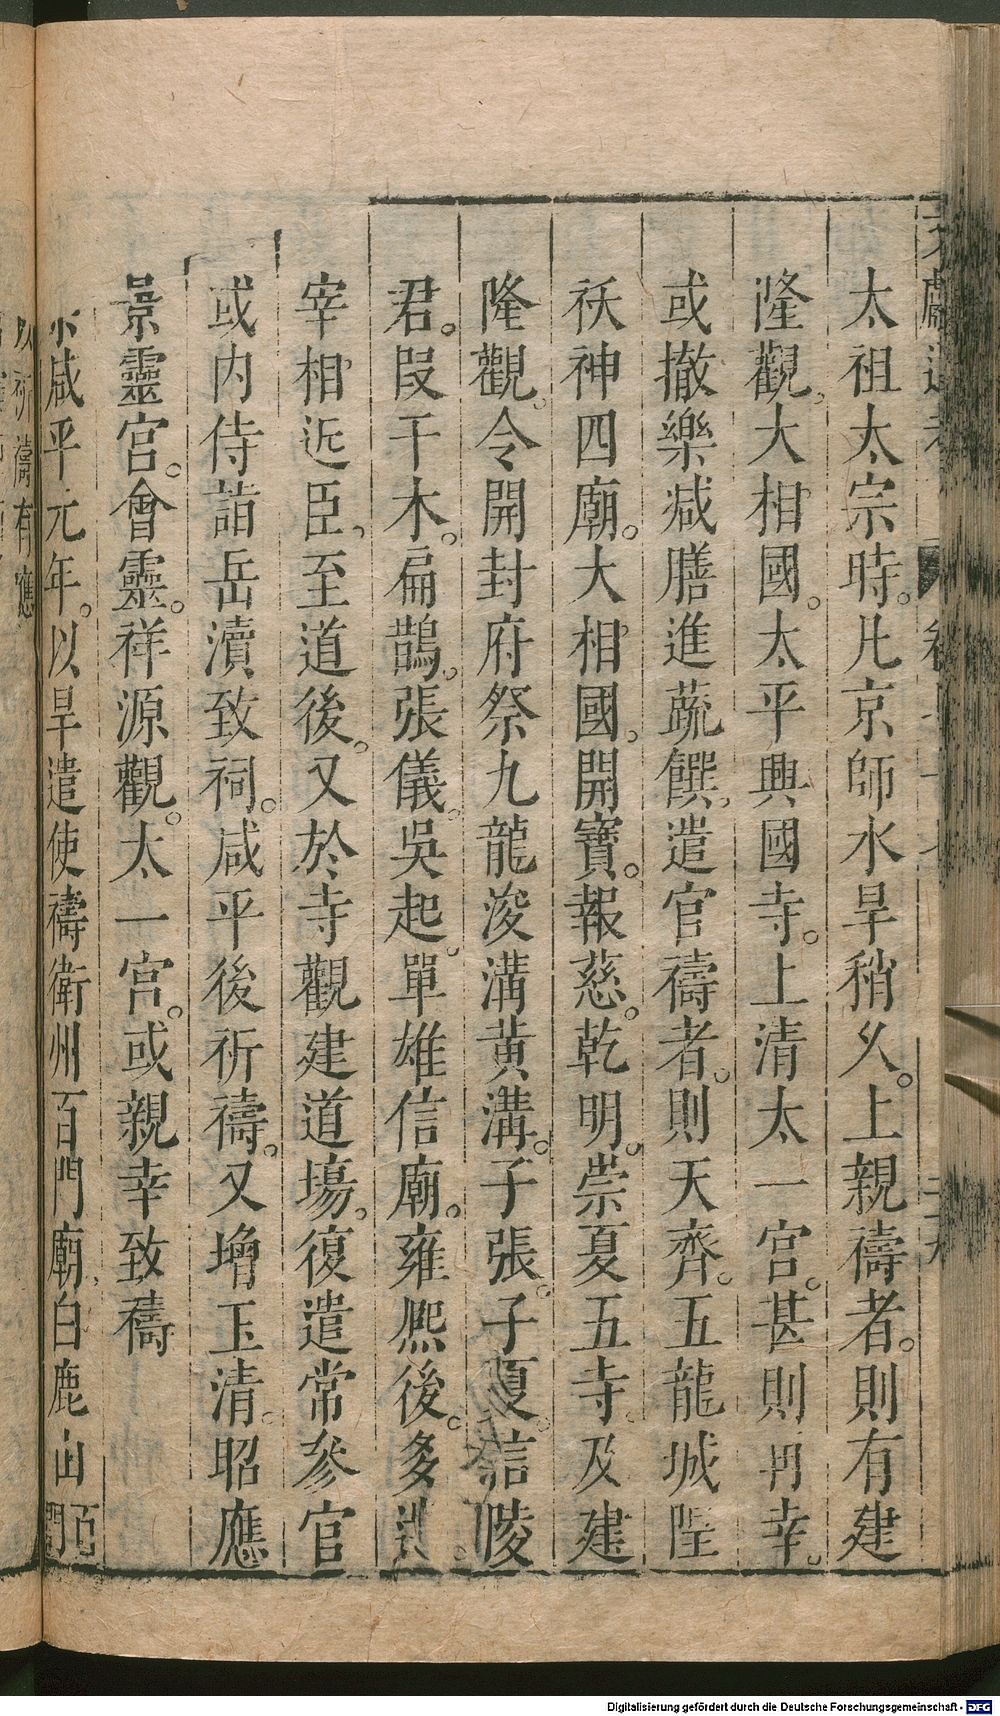 太祖太宗時。凡京師水旱稍久。上親禱者。則有建
隆觀。大相國。太平興國寺。上清太一宮。甚則再幸。
或撤樂減膳進蔬饌。遣官禱者。則天齊。五龍城隍
祅神四廟。大相國。開寶。報慈。乾明。崇夏五寺。及建
隆觀。令開封府祭九龍浚溝黃溝。子張。子夏。信陵
君。段干木。扁鵲。張儀。吳起。單雄信廟。雍熙後。多
宰相近臣。至道後。又於寺觀建道場。復遣常參官
或內侍詣岳瀆致祠。咸平後祈禱。又增玉清。昭應
景靈宮。會靈。祥源觀。太一宮。或親幸致禱
咸平元年。以旱遣使禱衛州百門廟。白鹿山百門
以祈禱有應
Digitalisierung gefördert durch die Deutsche Forschungsgemeinschaft - DFG